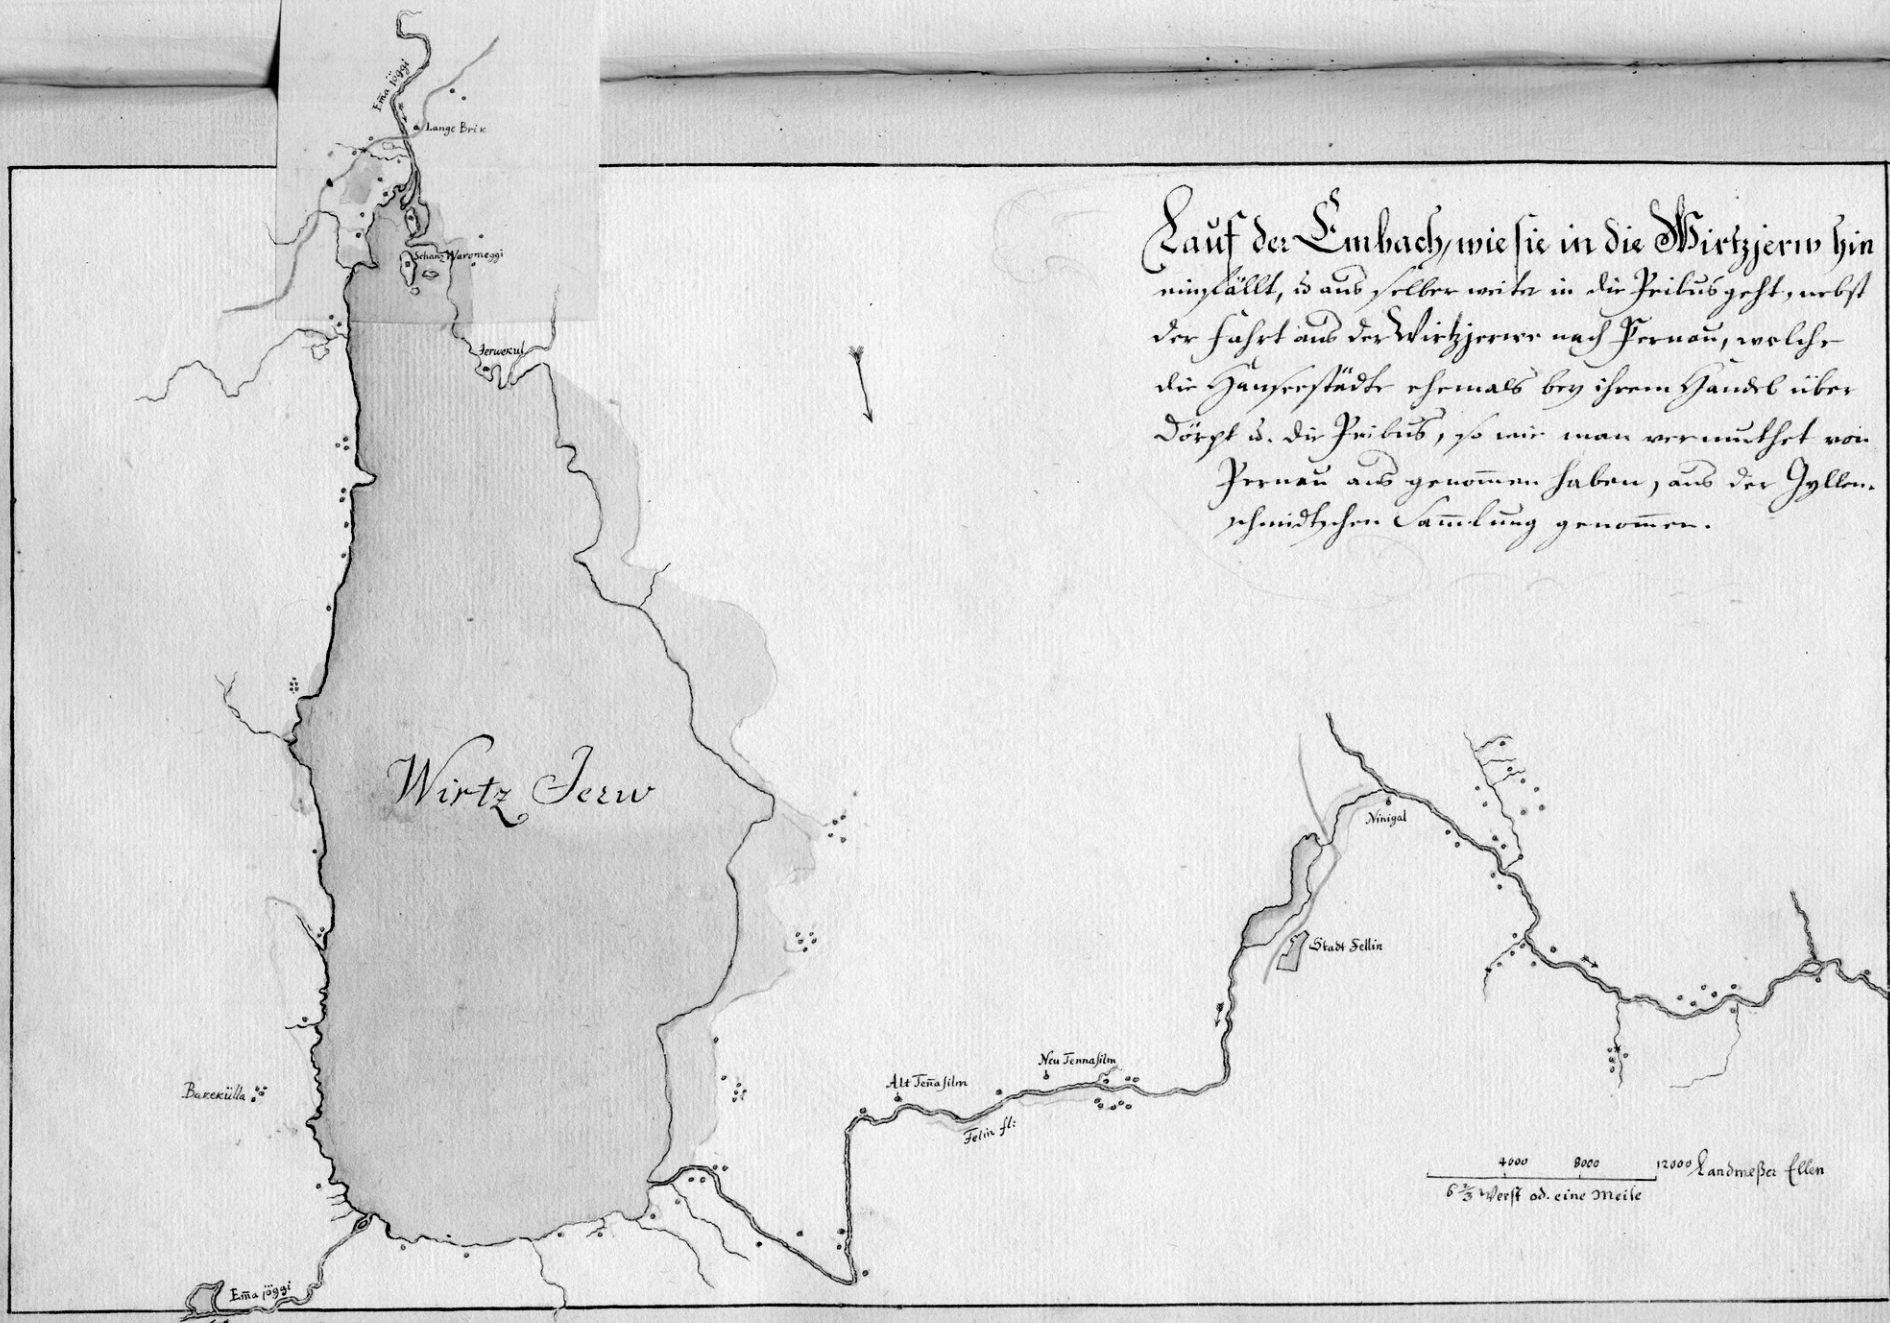 Em̄a jöggi
Lange Brik
Schanz Waromeggi
Jerwekul
Lauf der Embach, wie sie in die Wirtzjerw hin
einfällt, u aus selber weiter in die Peibus geht, nebst
der Fahrt aus der Wirtzjerwe nach Pernau, welche
die Hanseestädte ehemals bey ihrem Handel über
Dörpt u. die Peibus, so wie man vermuthet von
Pernau aus genom̄en haben, aus der Gyllen-
schmidtschen Sam̄lung genom̄en.
Wirtz Jerw
Ninigal
Stadt Fellin
Neu Tennasilm
Alt Ten̄asilm
Felin fl:
Barekülla
4000 8000 12000 Landmeßer Ellen
6 2/3 Werst od. eine Meile
Em̄a jöggi